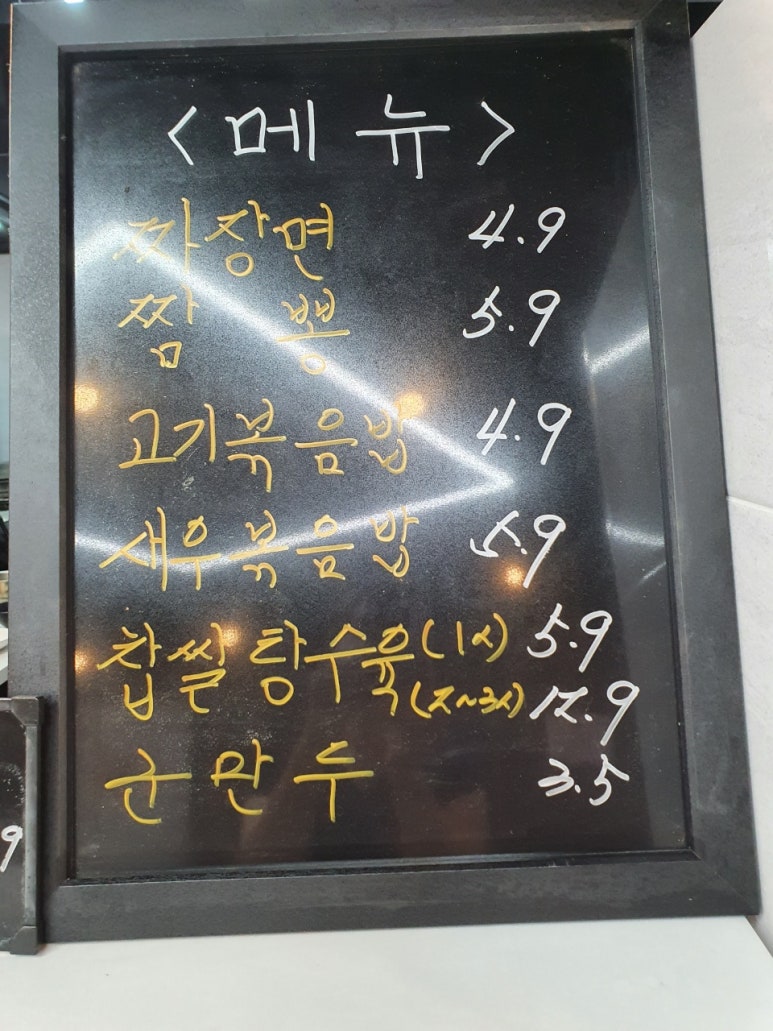 <메뉴>
짜장면 4.9
짬뽕 5.9
고기볶음밥 4.9
새우볶음밥 5.9
찹쌀탕수육(1人) 5.9
(2~3人) 12.9
군만두 3.5
9